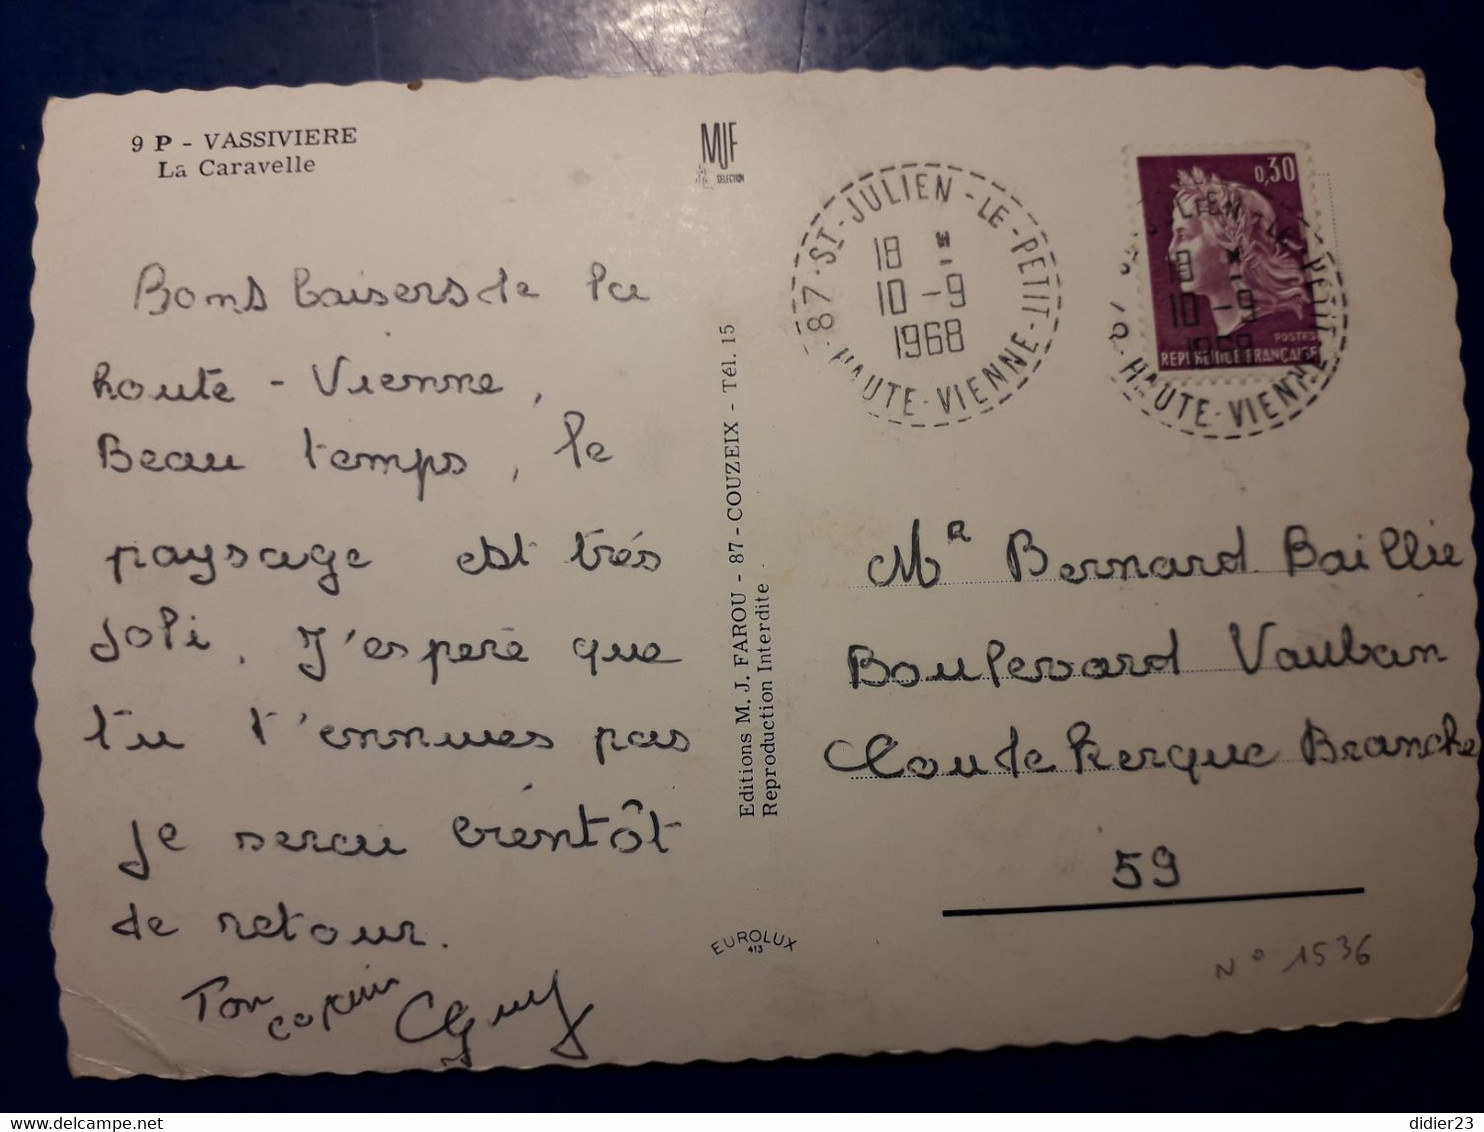 9 P - VASSIVIERE
La Caravelle
MJF
SELECTION
Bons baisers de la
houte - Vienne,
Beau temps, le
paysage est très
joli. J'espère que
tu t'ennuies pas
je serai bientôt
de retour.
Ton
copain
Guy
Editions M. J. FAROU - 87 - COUZEIX - Tél. 15
Reproduction Interdite
EUROLUX
413
87 - ST-JULIEN - LE - PETIT
18 H
10 - 9
1968
HAUTE - VIENNE
0,30
POSTES
REPUBLIQUE FRANÇAISE
ST-JULIEN - LE - PETIT
18 H
10 - 9
1968
HAUTE - VIENNE
Mr Bernard Baillie
Boulevard Vauban
Coudekerque Branche
59
N° 1536
didier23